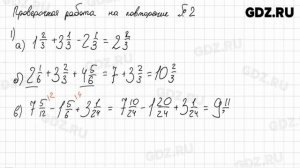 GDZ.RU
Проверочная работа на повторение № 2
1)
а) 1 2/3 + 3 1/3 - 2 1/3 = 2 2/3
б) 2 1/6 + 3 2/3 + 4 5/6 = 7 + 3 2/3 = 10 2/3
в) 7 5/12 - 1 5/6 + 3 1/24 = 7 10/24 - 1 20/24 + 3 1/24 =
GDZ.RU